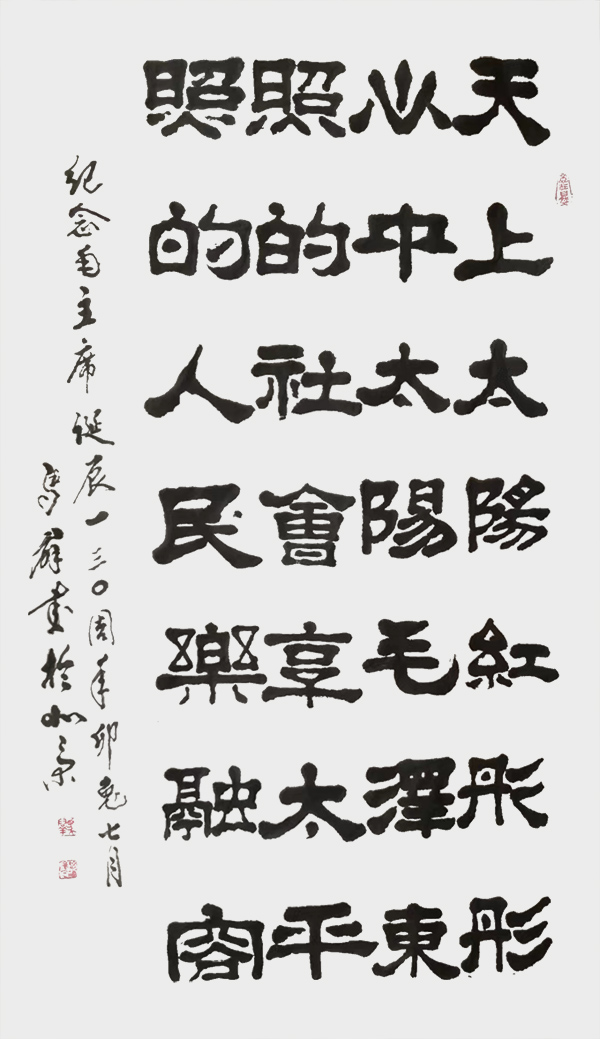 天上太陽紅彤彤
心中太陽毛澤東
照的社會享太平
照的人民樂融容
紀念毛主席誕辰一三〇周年卯兔七月
馬群書於北京